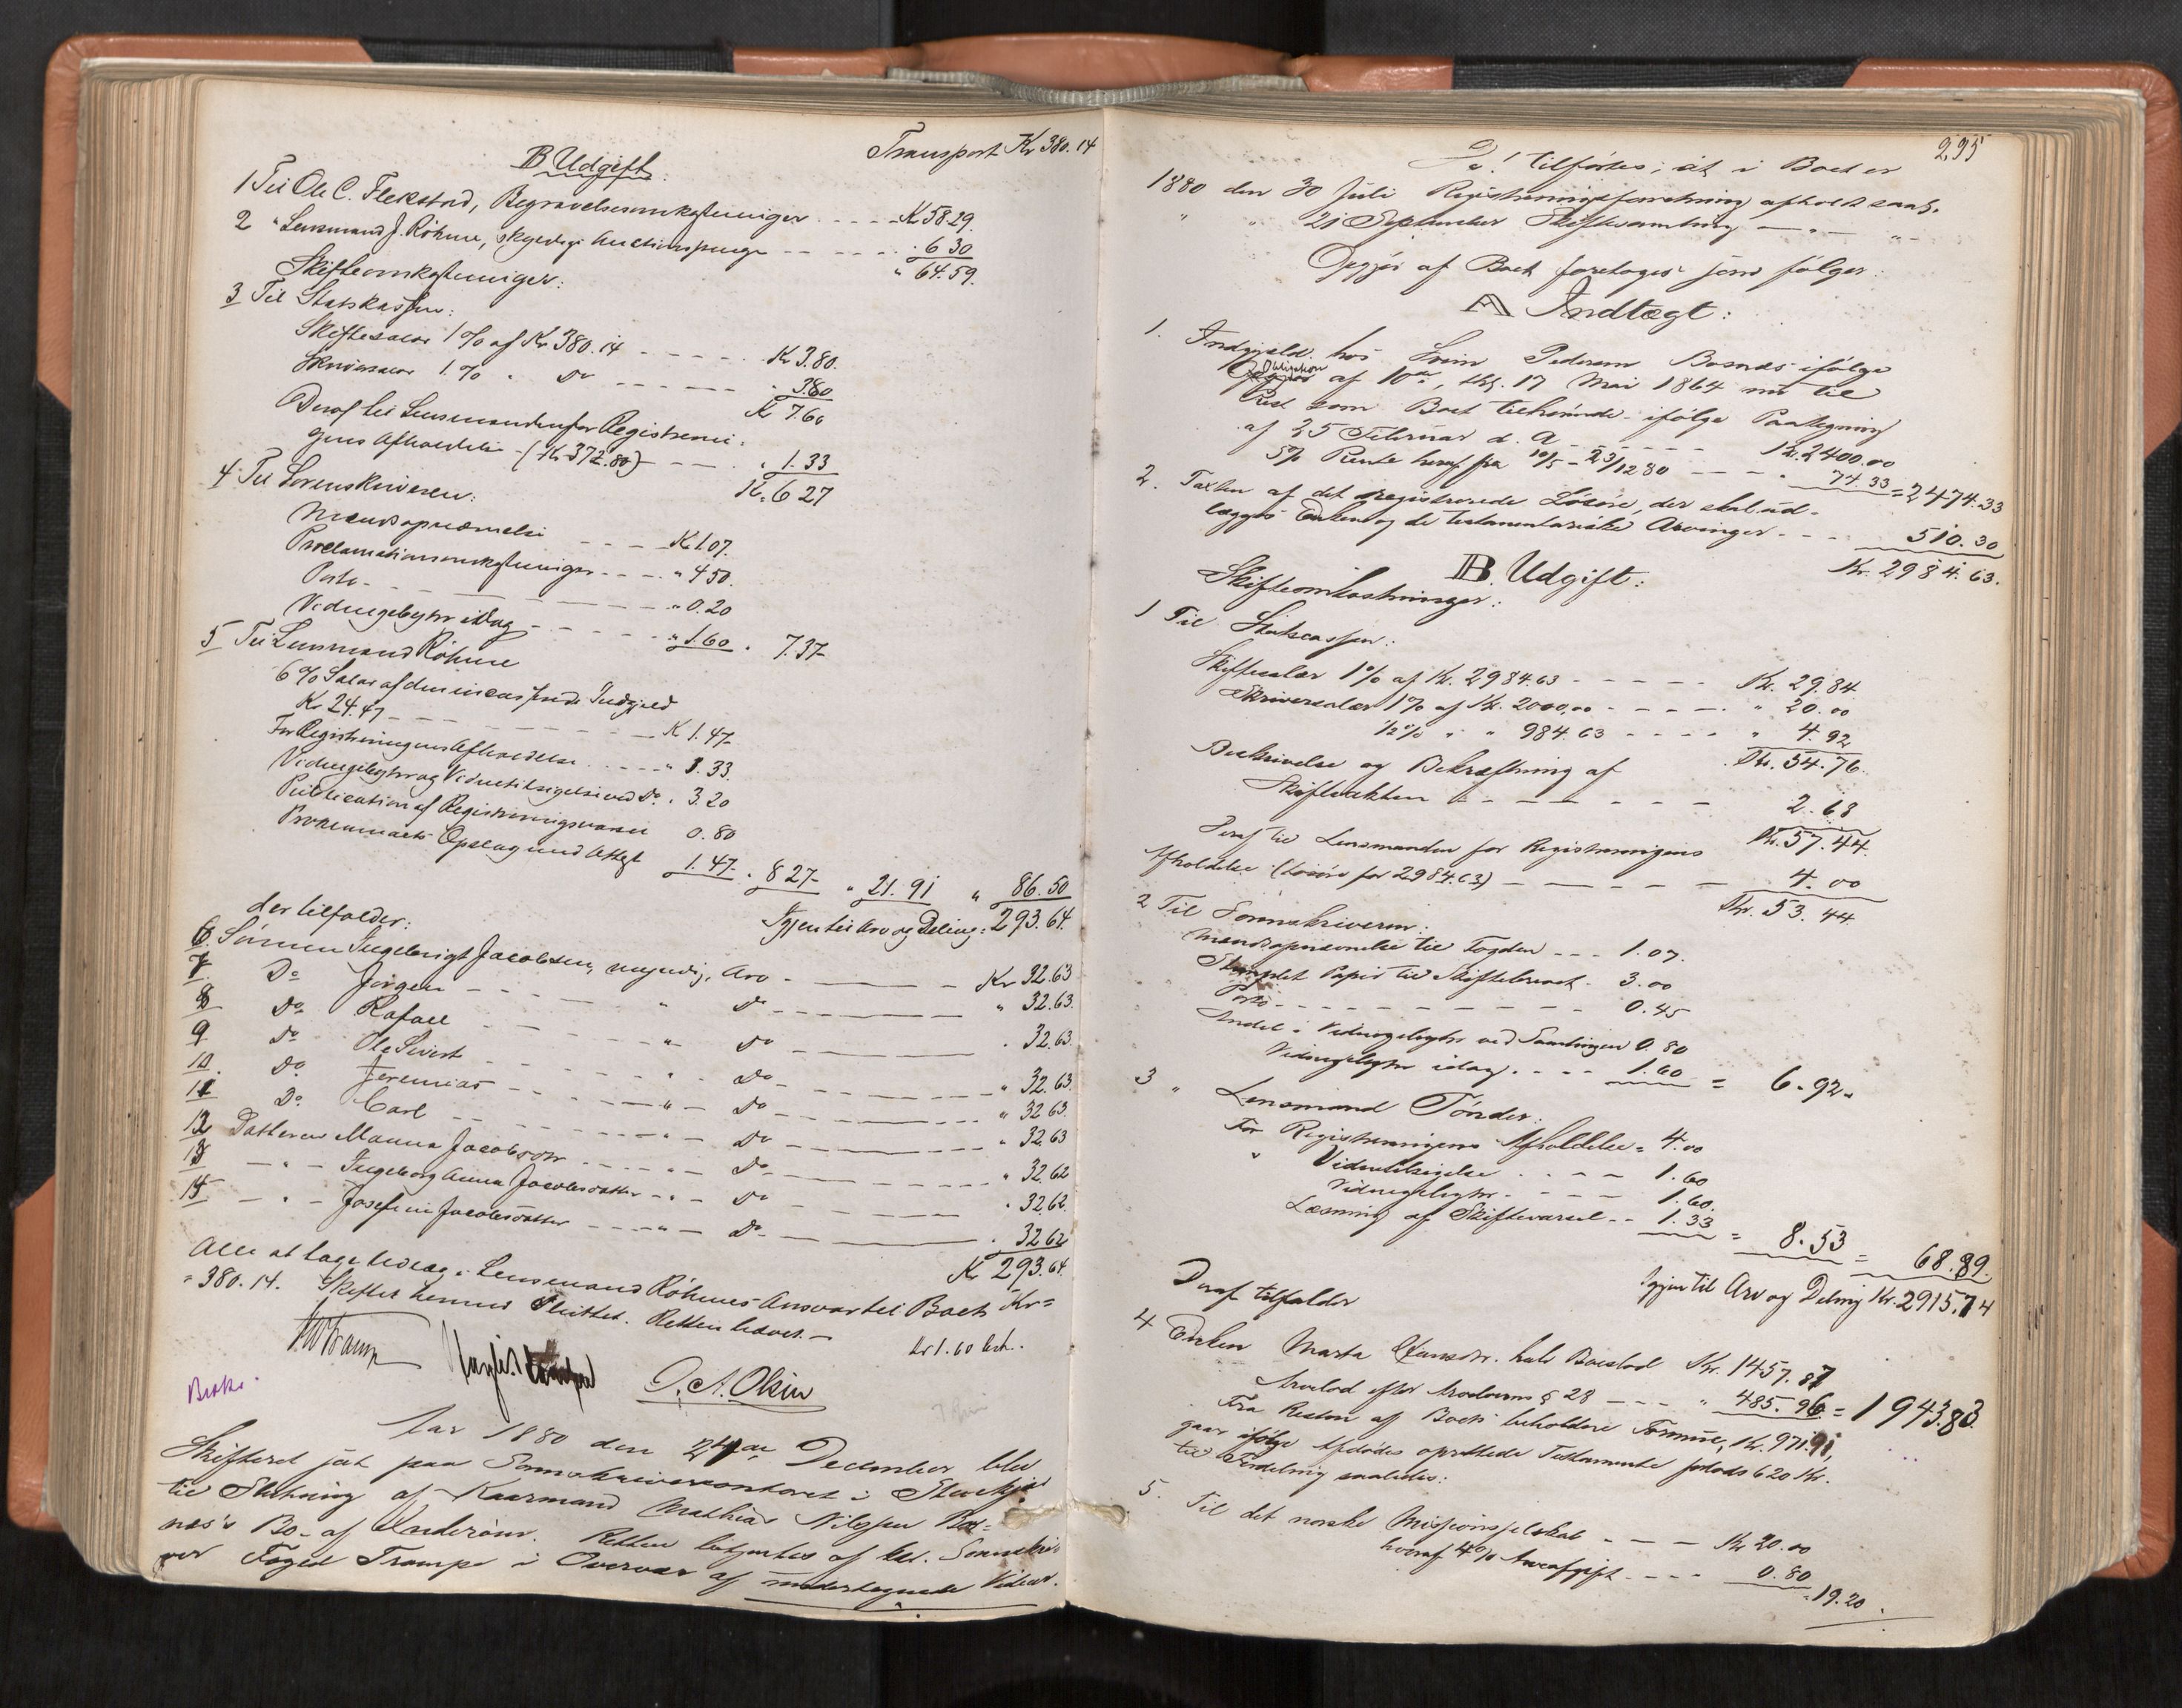 Transport Kr 380.14
B Udgift.
1 Til Ole C. Flekstad, Begravelsesomkostninger - - - - K 58 29.
2 " Lensmand J. Röhme, skyldige Auctionspenge - - - - - " 6 30
" 64.59.
Skifteomkostninger:
3 Til Statskassen:
Skiftesalær 1% af Kr 380.14 - - - - - - Kr 3.80.
Skriversalær 1.% " Do - - - - - - - " 380
Kr 7.60
Deraf til Lensmanden for Registrerin-
gens Afholdelse - (Kr 372.80) - - - - " 1.33
K. 6 27
4 Til Sorenskriveren:
Mandsopnævnelse - - - - K 1.07.
Proclamationsomkostninger - - - - " 4 50.
Porto - - - - - - " 0.20
Vidnegebyhr idag - - - - - " 1.60 . 7.37
5 Til Lensmand Röhme
6% Salær af den incasserede Indgjæld
Kr 24.47 - - - - - - K 1.47
For Registreringens Afholdelse - - - - " 1.33.
Vidnegebyhr og Vidnetilsigelse ved Do " 3.20
Publication af Registreringsvarsel 0.80
Proklamaets Opslag med Attest 1.47 . 8 27 " 21.91 " 86.50
Igjen til Arv og Deling: 293.64.
der tilfalder:
6. Sönnen Ingebrigt Jacobsen, myndig, Arv - - - Kr 32.63
7. Do Jörgen - - - " Do - - - " 32.63.
8 Do Rafael - - - " Do - - - . 32.63.
9. Do Ole Sivert - - - " Do - - - " 32.63.
10. Do Jeremias - - - " Do - - - " 32 63.
11 Do Carl - - - " Do - - - " 32.63
12 Datteren Manna Jacobsdr - - - " Do - - - " 32.62
13 - " - Ingeborg Anna Jacobsdatter - " - Do - - - " 32 62.
14 - " - Josefine Jacobsdatter - - - " - Do - - - . 32 62
Kr 293.64.
Alle at tage Udlæg i Lensmand Röhmes Ansvar til Boet Kr=
= 380.14. Skiftet hermed Sluttet. Retten hævet. -
Kr 1.60 bet.
O. A. Olsen
Aar 1880 den 24de December blev
Skifteret sat paa Sorenskriverkontoret i Steenkjær
til Slutning af Kaarmand Mathias Nilssen Bos=
næs's Bo af Inderöen. Retten betjentes af kst. Sorenskri-
ver Foged Trampe i Overvær af undertegnede Vidner.
295
Da! tilförtes; at i Boet er
1880 den 30 Juli Registreringsforretning afholdt saah.
" " 21 September Skiftesamling - " - " -
Opgjör af Boet foretoges som fölger:
A Indtægt:
1. Indgjæld hos Svein Pedersen Bosnæs ifölge
Obligation af 10de, thgl. 17 Mai 1864 nu til
Rest som Boet tilhörende ifölge Paategning
af 25 Februar d. A. - - - - - - Kr. 2400.00
5% Rente heraf fra 10/5 - 23/12 80 - - - " 74.33 = 2474.33
2. Taxten af det registrerede Lösöre, der skal ud-
lægges Enken og de testamentariske Arvinger - - - 510.30
Kr. 2984.63.
B. Udgift:
Skifteomkostninger:
1 Til Statscassen:
Skiftesalær 1% af Kr. 2984.63 - - - - - Kr. 29.84
Skriversalær 1% af Kr. 2000,00 - - - - " 20.00
1/2% " " 984.63 - - - - " 4.92
Kr. 54.76.
Beskrivelse og Bekræftning af
Skifteakten - - - - - - 2.68
Kr. 57.44.
Heraf til Lensmanden for Registreringens
Afholdelse (Lösöre for 2984.63) - - - - - 4.00
Kr. 53.44.
2 Til Sorenskriveren:
Mandsopnævnelse til Fogden - - - 1.07.
Stemplet Papir til Skiftebrevet - 3.00
Porto - - - - - - 0.45
Andel i Vidnegebyhr ved Samlingen 0.80
Vidnegebyhr idag - - - - 1.60 = 6.92.
3 " Lensmand Tönder:
For Registreringens Afholdelse = 4.00
" Vidnetilsigelse - - - - 1.60
Vidnegebyhr - - - - 1.60.
Læsning af Skiftevarsel - - 1.33 = 8.53 = 68.89.
Igjen til Arv og Deling Kr. 2915.74
Deraf tilfalder
4 Enken Marta Hansdr. halv Boeslod Kr. 1457.87
Arvelod efter Arvelovens § 28 - - - " 485.96 = 1943.83.
Fra Resten af Boets beholdne Formue, Kr. 971.91,
gaar ifölge Afdödes oprettede Testamente forlods 620 Kr.
til Fordeling saaledes:
5. Til det norske Missionsselskab - - - Kr 20.00
hvoraf 4% Arveafgift - - - - 0.80 = 19.20.